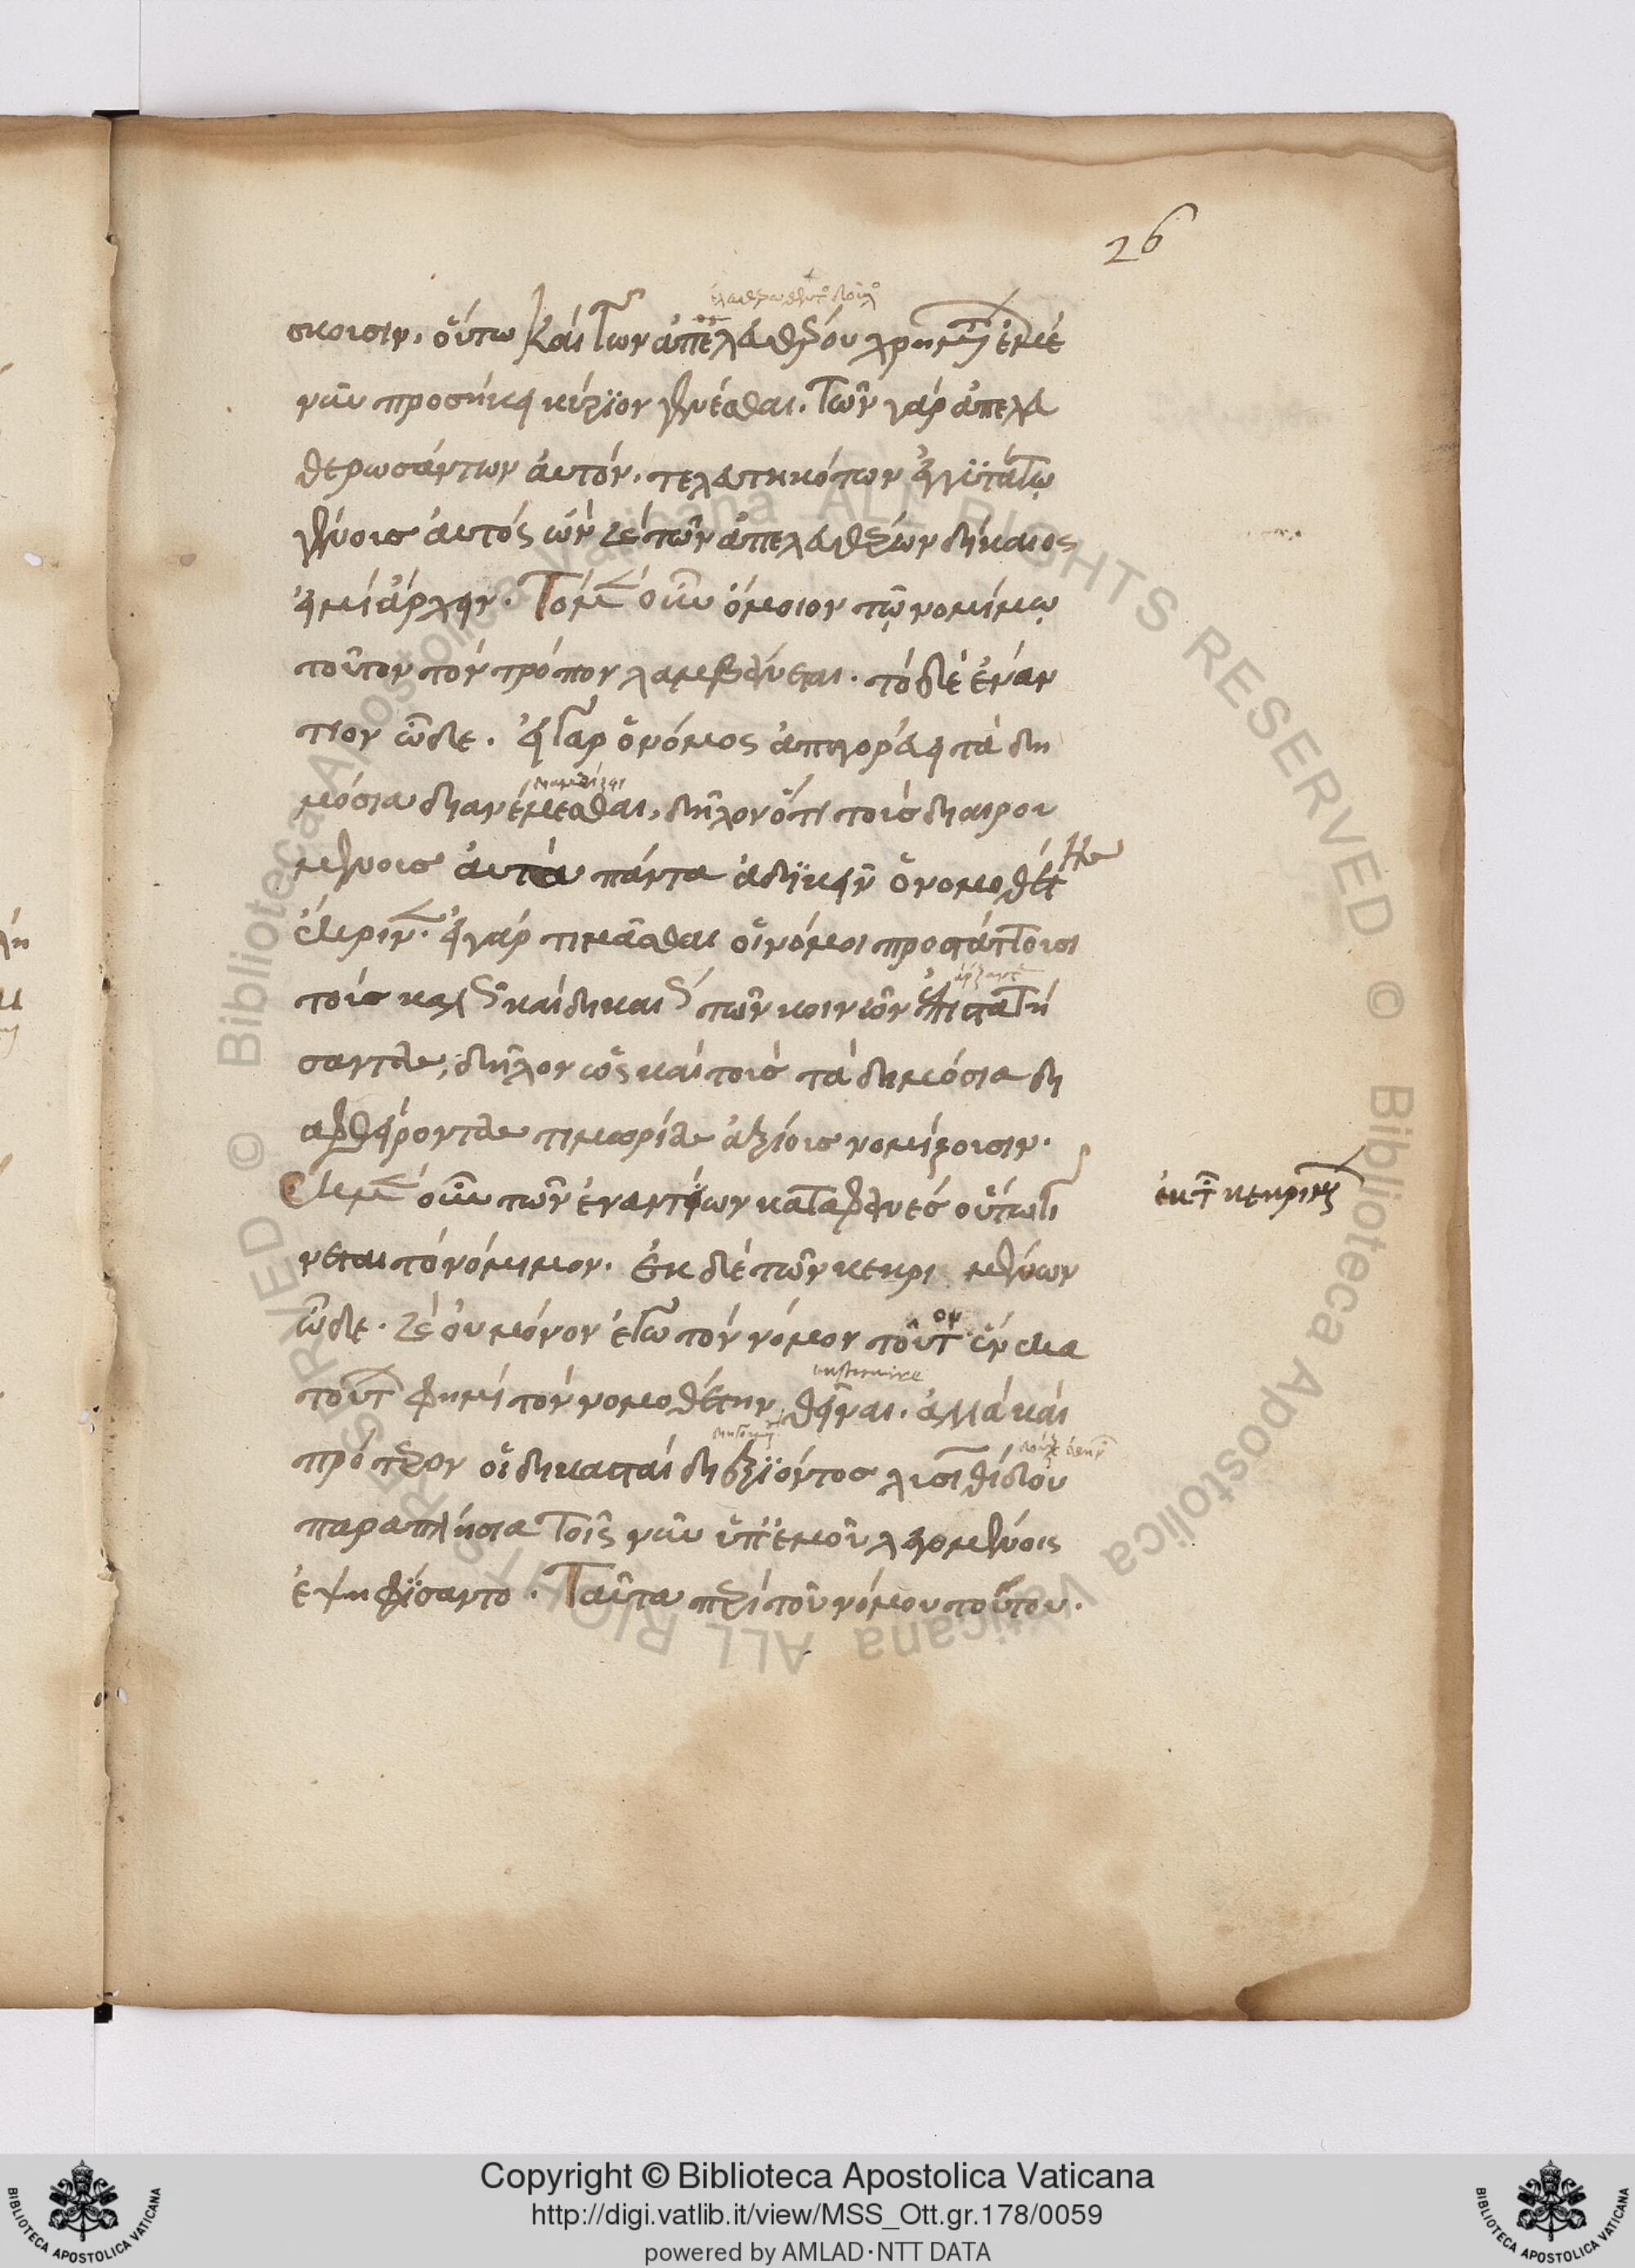 26
σκουσιν, οὕτω καὶ τῶν ἀπελευθέρου χρημάτων ἐμὲ
νῦν προσήκει κύριον γενέσθαι. τῶν γὰρ ἀπελευ
θερωσάντων αὐτόν, τελευτηκότων ἐγγϋτάτω
γένους αὐτός ὢν καὶ τῶν ἀπελευθέρων δίκαιος
εἰμὶ ἄρχειν. Τὸ μὲν οὖν ὅμοιον τῷ νομίμῳ
τοῦτον τὸν τρόπον λαμβάνεται. τὸ δὲ ἐναν
τίον ὧδε. εἰ γὰρ ὁ νόμος ἀπαγορεύει τὰ δη
μόσια διανέμεσθαι, δῆλον ὅτι τοὺς διαιρου
μένους αὐτὰ πάντας ἀδϊκεῖν ὁ νομοθέτης
ἔκρινεν. εἰ γὰρ τιμᾶσθαι οἱ νόμοι προστάττουσι
τοὺς καλῶς καὶ δικαίως τῶν κοινῶν ἐπιστατή
σαντας, δῆλον ὡς καὶ τοὺς τὰ δημόσια δι
αφθείροντας τιμωρίας ἀξίους νομίζουσιν.
Ἐκ μὲν οὖν τῶν ἐναντίων καταφανὲς οὕτω γί
νεται τὸ νόμιμον. ἐκ δὲ τῶν κεκρι μένων
ἐκ τ κεκριμένων
ὧδε. καὶ οὐ μόνον ἐγὼ τὸν νόμον τοῦτον ἕνεκα
τούτου φημὶ τὸν νομοθέτην θεῖναι. ἀλλὰ καὶ
πρότερον οἱ δικασταὶ διεξϊόντος λυσιθίδου
παραπλήσια τοῖς νῦν ὑπ' ἐμοῦ λεγομένοις
ἐψηφΐσαντο. Ταῦτα περὶ τοῦ νόμου τούτου.
Copyright © Biblioteca Apostolica Vaticana
http://digi.vatlib.it/view/MSS_Ott.gr.178/0059
powered by AMLAD·NTT DATA
BIBLIOTECA APOSTOLICA VATICANA
BIBLIOTECA APOSTOLICA VATICANA
© Biblioteca Apostolica Vaticana ALL RIGHTS RESERVED © Biblioteca Apostolica Vaticana ALL RIGHTS RESERVED